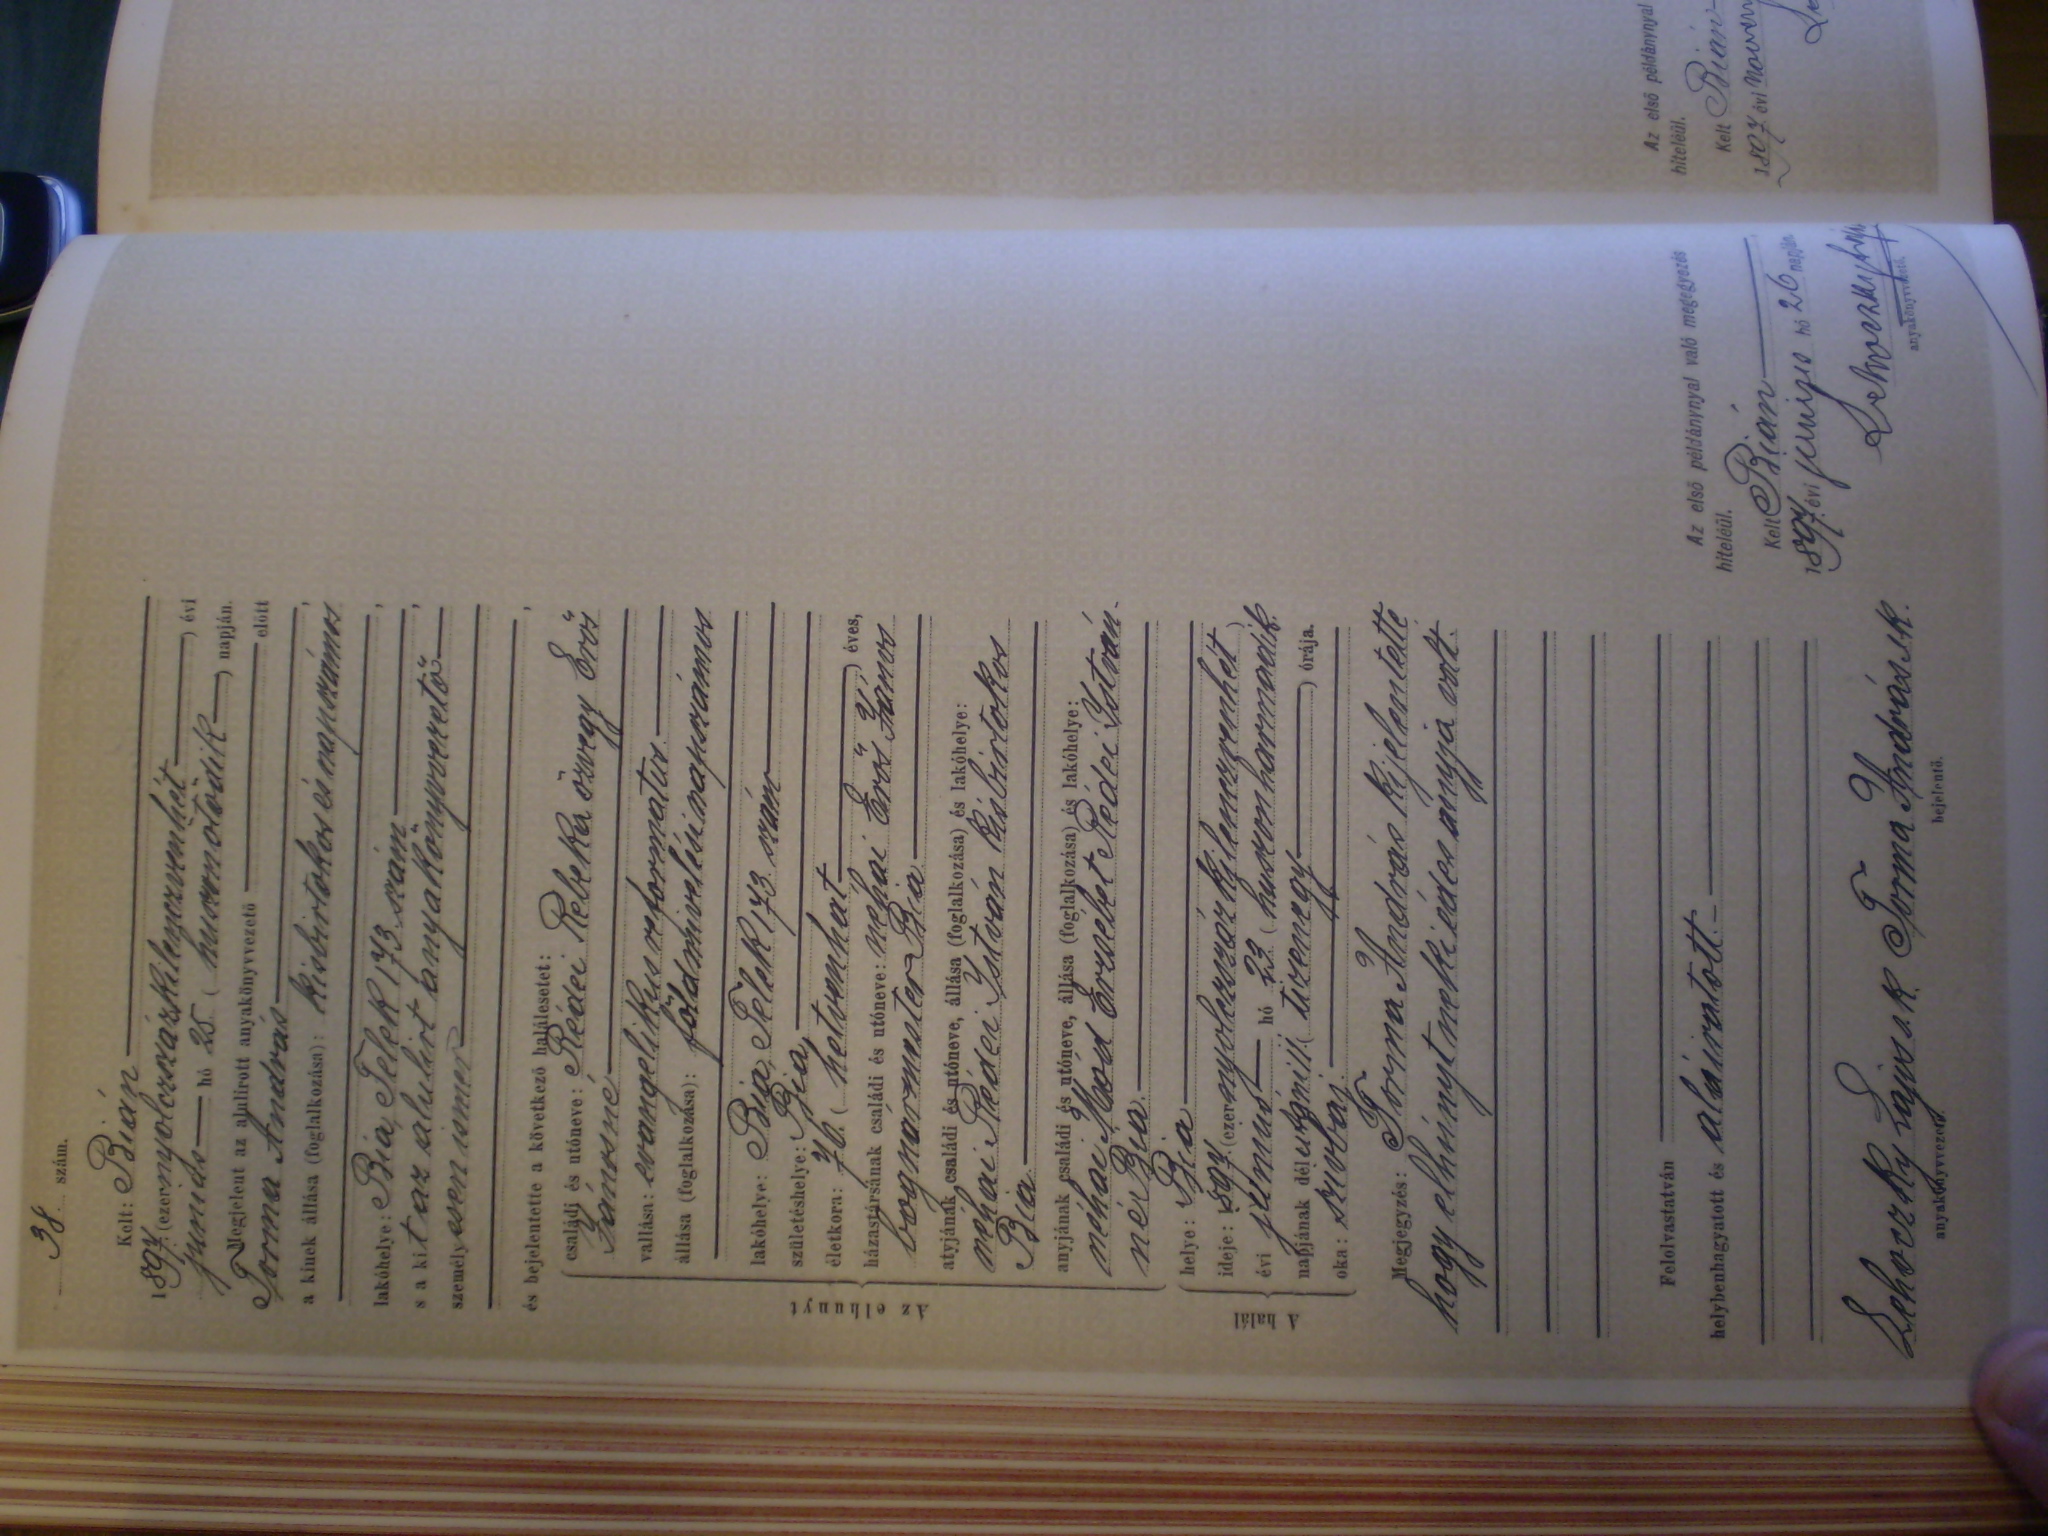 38. szám.
Kelt: Bián
1897 (ezernyolczszázkilenczvenhét) évi
junius hó 25. (huszonötödik) napján.
Megjelent az alulírott anyakönyvvezető előtt
Torma András
a kinek állása (foglalkozása): kisbirtokos és napszámos,
lakóhelye: Bia, Telek 173. szám,
s a kit az alulirt anyakönyvvezető,
személyesen ismer
és bejelentette a következő halálesetet:
Az elhunyt
családi és utóneve: Rédei Rebeka özvegy Erős
Jánosné
vallása: evangelikus reformatus.
állása (foglalkozása): földmivelési napszámos
lakóhelye: Bia, Telek 173. szám
születéshelye: Bia,
életkora: 76. (hetvenhat) éves,
házastársának családi és utóneve: néhai Erős János
bognármester Bia
atyjának családi és utóneve, állása (foglalkozása) és lakóhelye:
néhai Rédei István kisbirtokos
Bia.
anyjának családi és utóneve, állása (foglalkozása) és lakóhelye:
néhai Maod Erzsébet Rédei István-
né Bia.
A halál
helye: Bia
ideje: 1897 (ezernyolczszázkilenczvenhét)
évi junius hó 23. (huszonharmadik.
napjának délutáni (tizenegy) órája.
oka:
Megjegyzés: Torma András kijelentette
hogy elhúnyt neki édes annyja volt.
Felolvastatván
helybenhagyatott és aláíratott.
Lehoczky Lajos s. k.
anyakönyvvezető.
Torma András s. k.
bejelentő.
Az első példánynyal való megegyezés
hiteléül.
Kelt Bián
1897 évi junius hó 26 napján.
anyakönyvvezető.
Az első példánynyal
hiteléül.
Kelt Bián
1897. évi